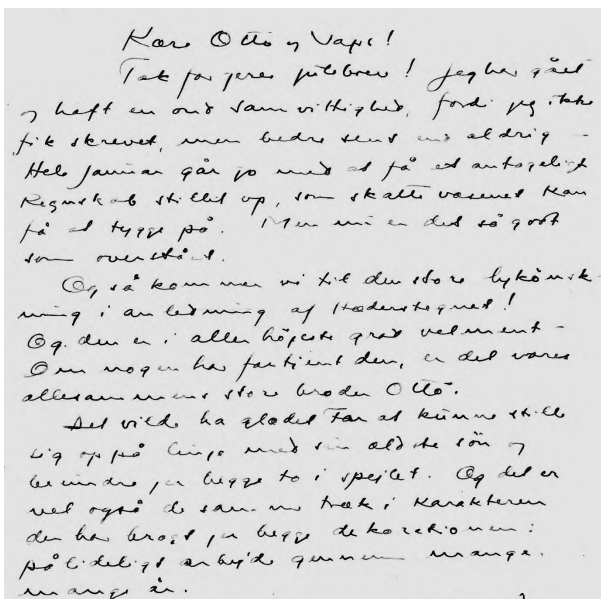 Kære Otto og Vapi!
Tak for jeres julebrev! Jeg har gået
og haft en ond samvittighed, fordi jeg ikke
fik skrevet, men bedre sent end aldrig –
Hele Januar går jo med at få et antageligt
Regnskab stillet op, som skattevæsenet kan
få at tygge på. Men nu er det så godt
som overstået.
Og så kommer vi til den store lykønsk-
ning i anledning af Hæderstegnet!
Og den er i aller højeste grad velment –
Om nogen har fortjent den, er det vores
allesammens store broder Otto.
Det vilde ha glædet Far at kunne stille
sig op på linje med sin ældste søn og
beundre jer begge to i spejlet. Og det er
vel også de samme træk i Karakteren
der har bragt jer begge dekorationen:
pålideligt arbejde gennem mange,
mange år.